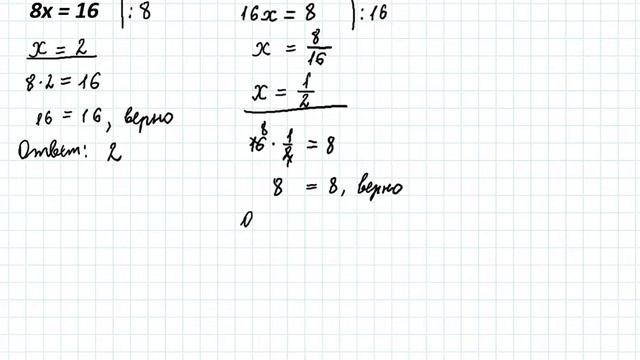 8x = 16 | : 8
x = 2
8 · 2 = 16
16 = 16, верно
Ответ: 2
16x = 8 | : 16
x = 8/16
x = 1/2
16 8 · 1/2 = 8
8 = 8, верно
О